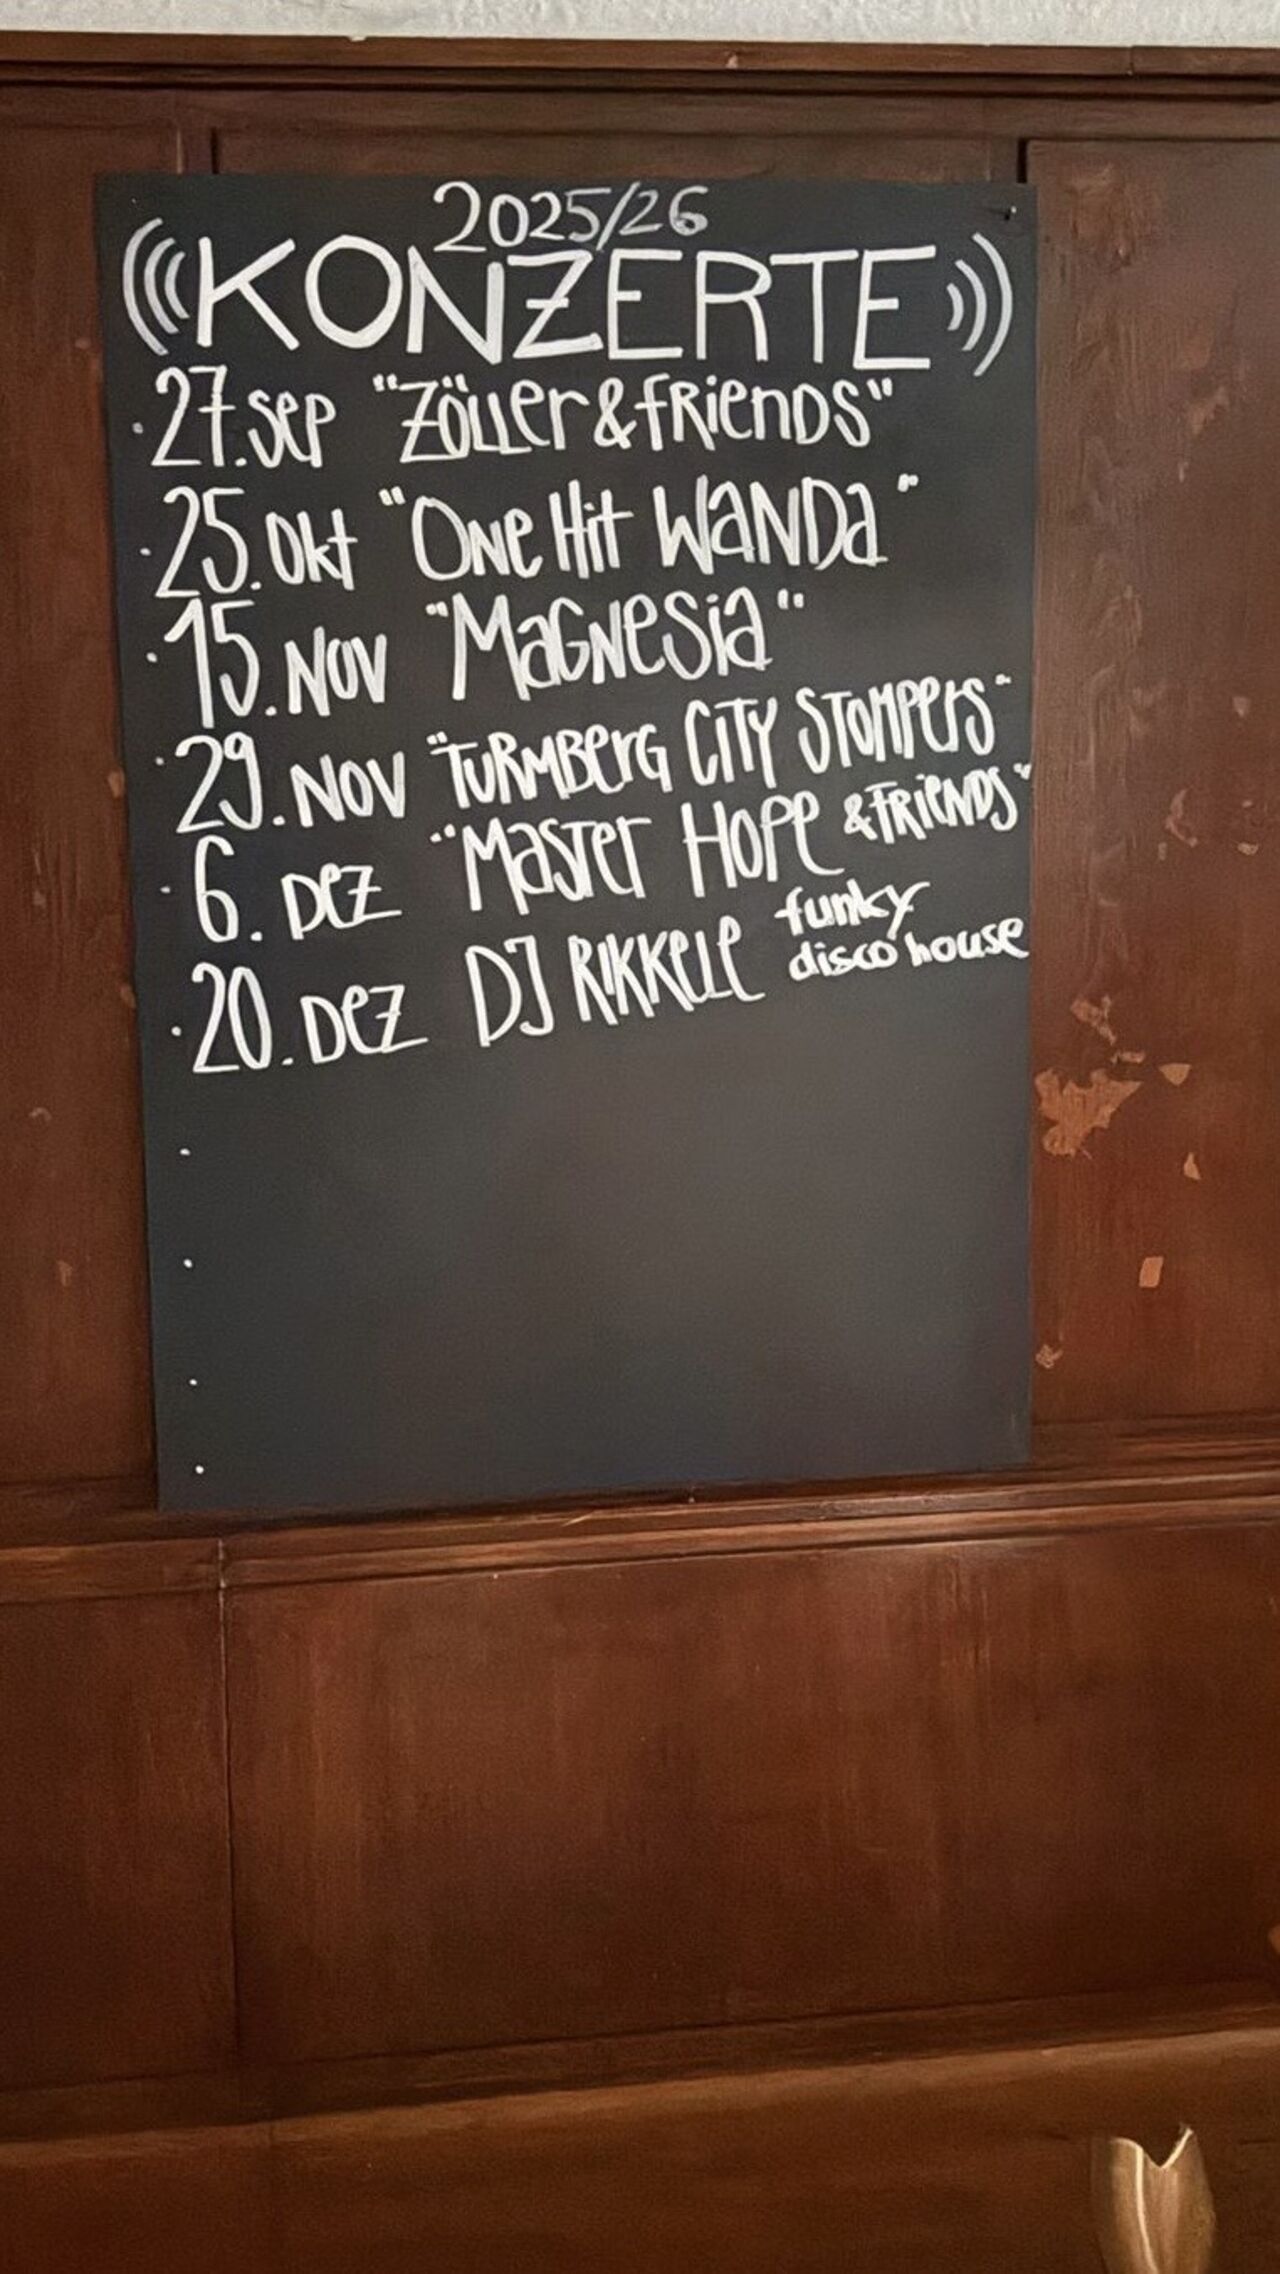 2025/26
KONZERTE
· 27. Sep "Zöller & Friends"
· 25. Okt "One Hit Wanda"
· 15. Nov "Magnesia"
· 29. Nov "Turmberg City Stompers"
· 6. Dez "Master Hope & Friends"
· 20. Dez DJ Rikkele funky disco house